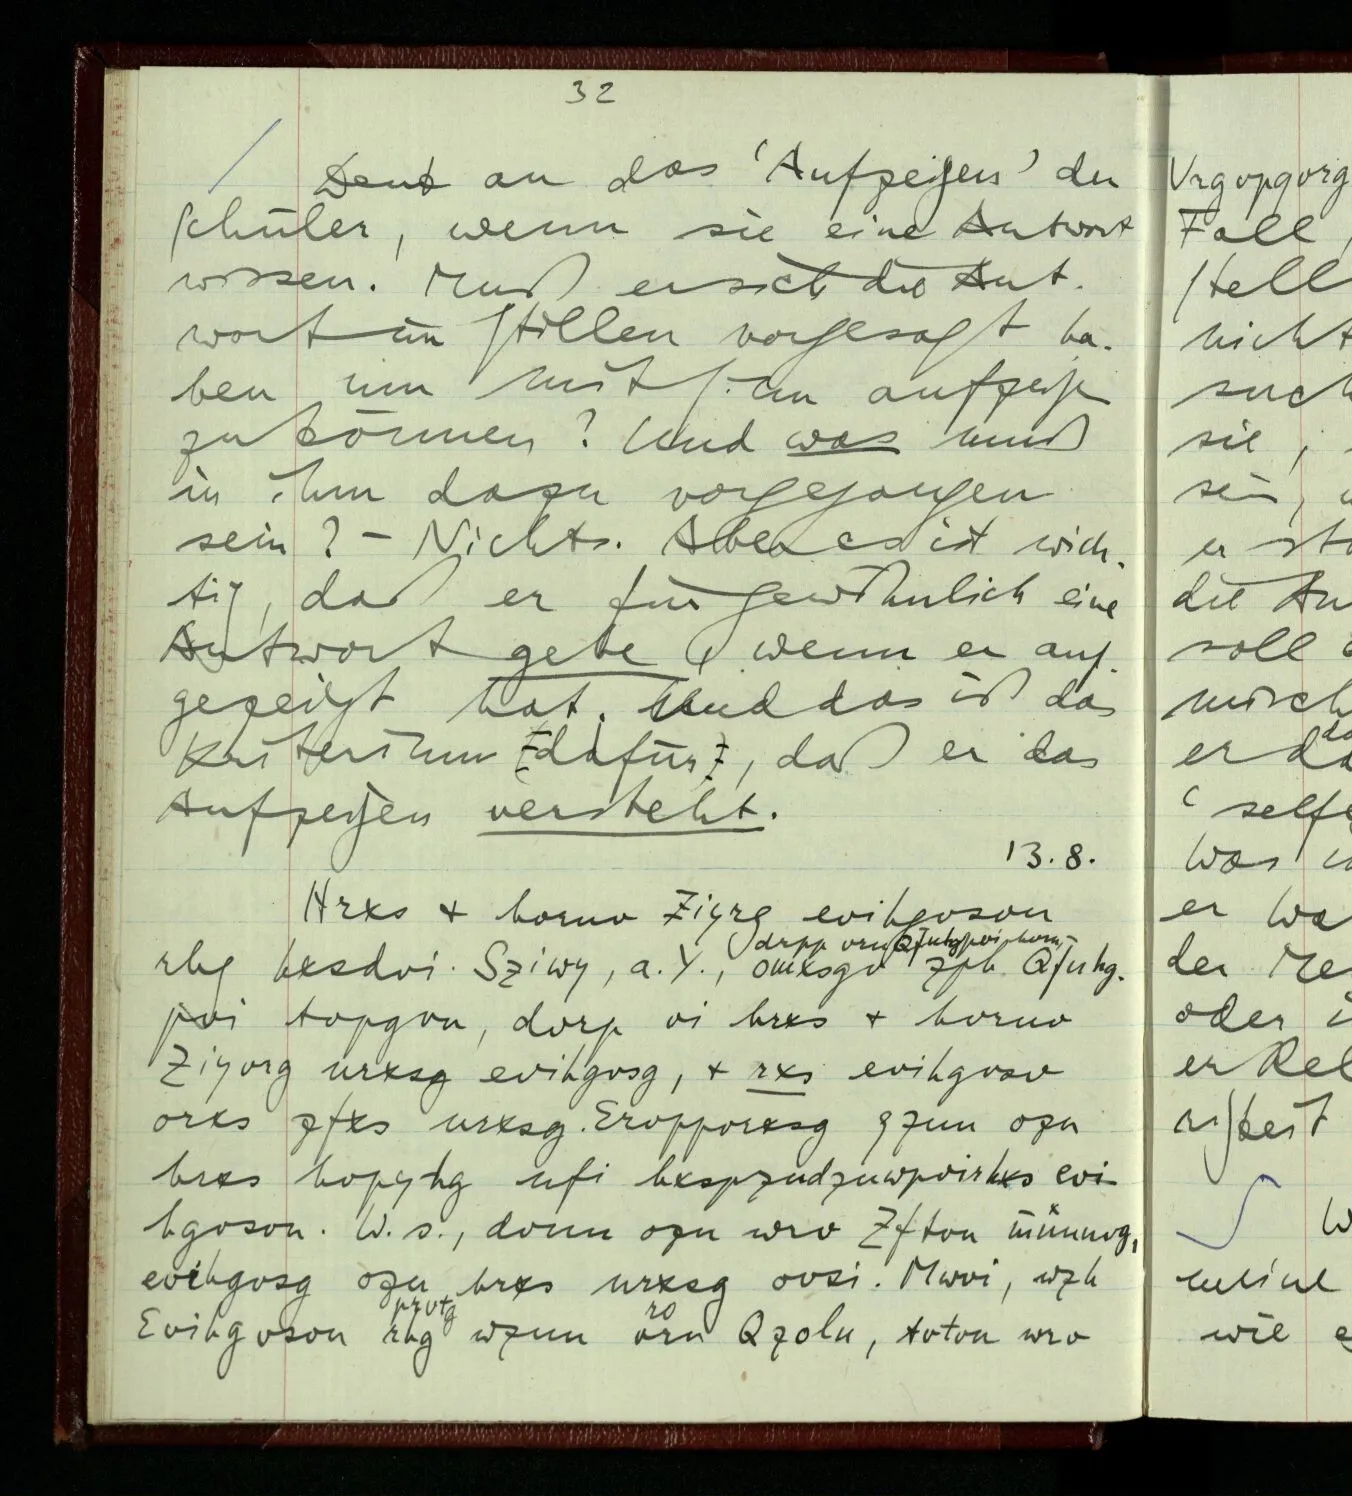 32
Denk an das 'Aufzeigen' der
Schüler, wenn sie eine Antwort
wissen. Muß er sich die Ant-
wort im Stillen vorgesagt ha-
ben um mit Sinn aufzeigen
zu können? Und was muß
in ihm dazu vorgegangen
sein? – Nichts. Aber es ist wich-
tig, daß er für gewöhnlich eine
Antwort gebe, wenn er auf-
gezeigt hat. Und das ist das
Kriterium [dafür], daß er das
Aufzeigen versteht.
13.8.
Hrxs + horuv Ziyrg evihgoson
drpp oru
rhg hxsdvi. Sziwy, a. Y., omxsgv zph Qfuhg-
pvi topgvn, dorp oi hrxs + horuv
Ziyorg urxsg evihgosg, + rxs evihgosv
orxs zfxs urxsg. Eroppvrxsg gzun ozn
hrxs hopyhg ufi hxspzudzuwpvirhxs evi-
hgoson. W. s., donn ozn wrv Zfton münnvg,
evihgosg ozn hrxs urxsg ovsi. Mwvi, wzh
przotg ro
Evihgoson rhg wzun orn Qzolu, totou wrv
Vrgopgorg
Fall,
Stell
nicht
such
sie,
sein,
er
die An
soll
misch
er da
'selfe
Was
er wa
der Me
oder
er Rel
W
meine
wie